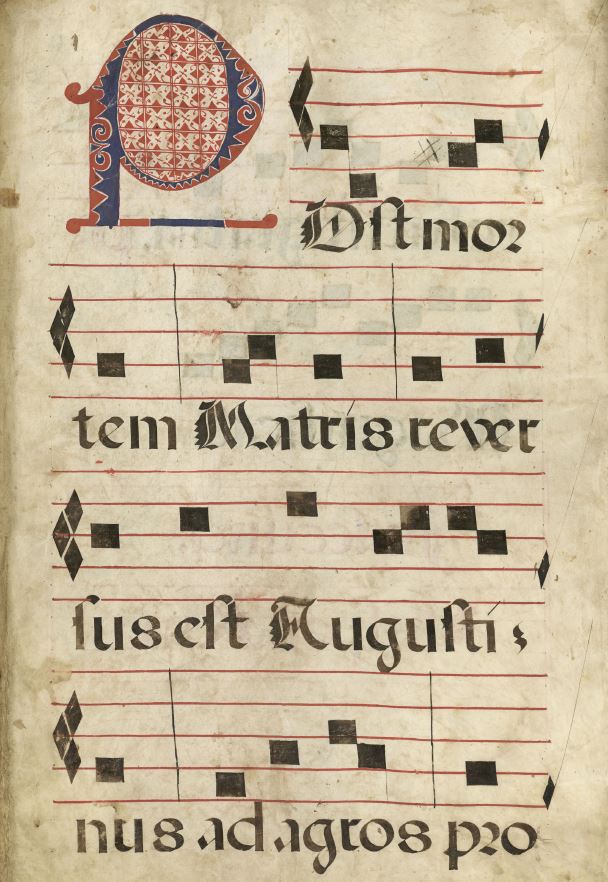 POſt mor
tem Matris rever
sus eſt Auguſti
nus ad agros pro